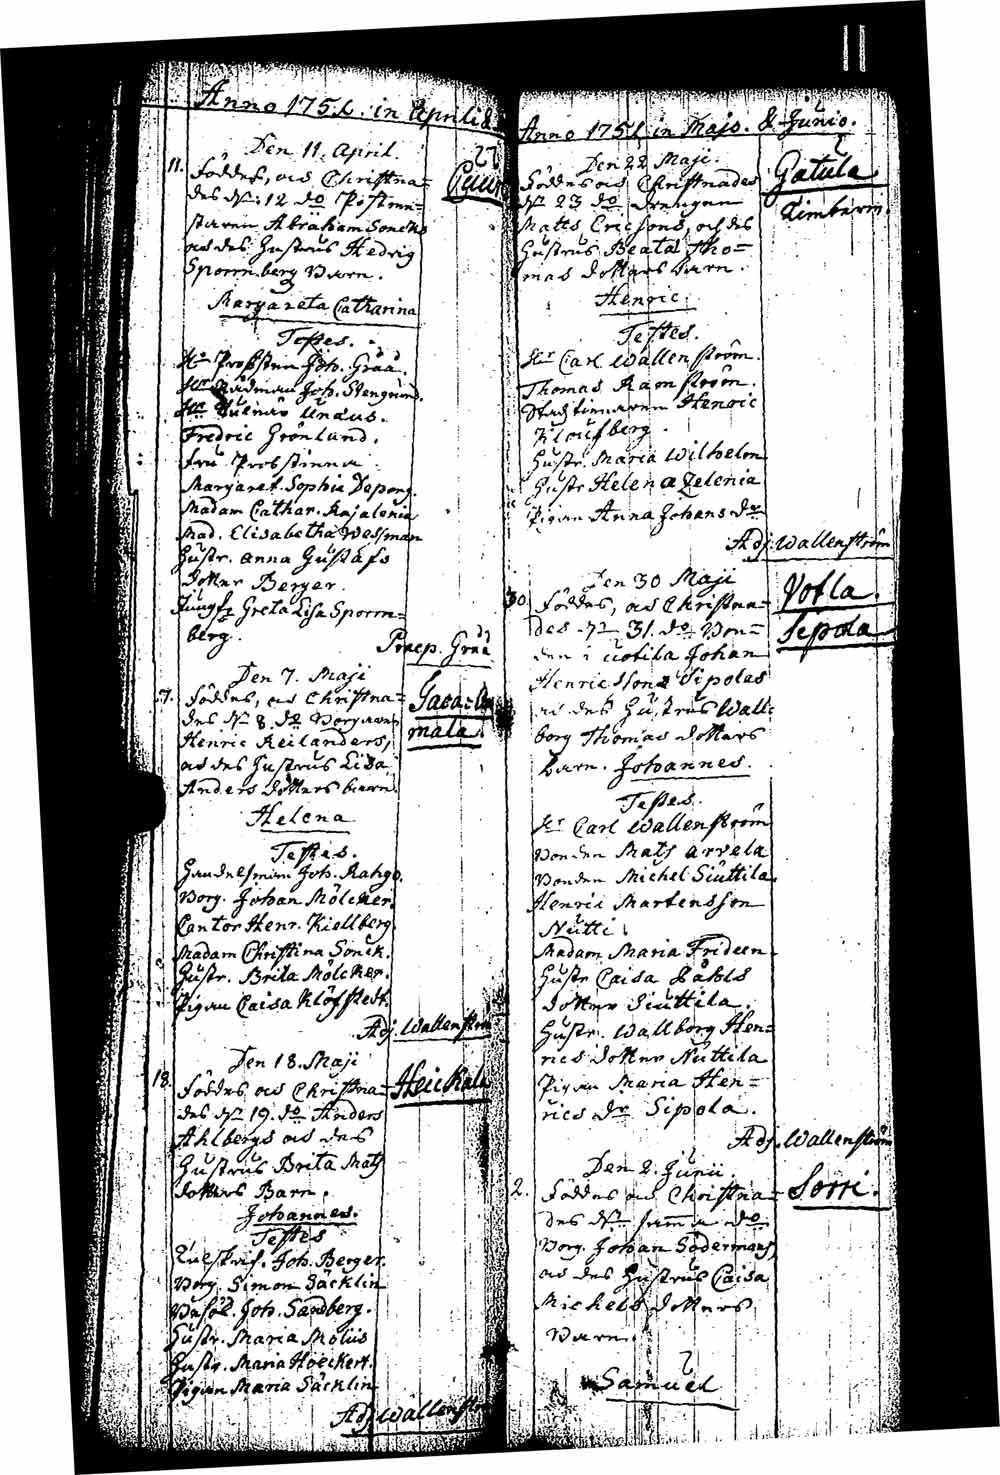 Anno 1751. in Aprili &
Den 11. April.
11. Föddes, och Christna=
des dn: 12 do Postme=
staren Abraham Soncks
och des Hustrus Hedvig
Sporrnberg Barn.
Margareta Catharina
Testes.
Hr Probsten Joh. Gråå.
Hr Rådman Joh. Stengrund.
Hr
Fredric Grönlund.
Fru Probstinna
Margaret. Sophia Depong.
Madam Cathar. Kajalenia
Mad. Elisabetha Wessman
Hustr. Anna Gustafs
dotter Berger.
Jungfr Greta Lisa Sporrn=
berg.
Praep. Gråå
Den 7. Maji
7. Föddes, och Christna=
des dn 8 do Borgaren
Henric Keilanders,
och des Hustrus Lisa
Anders dotters barn.
mala.
Helena
Testes.
Handelsman Joh. Rahgo.
Borg. Johan Mölcker.
Cantor Henr. Kiellberg.
Madam Christina Sonck.
Hustr. Brita Mölcker.
Pigan Caisa Klöfstedt.
Adj. Wallenström
Den 18. Maji
18. Föddes och Christna= Heickala
des dn 19. do Anders
Ahlbergs och des
Hustrus Brita Mats
dotters Barn.
Johannes.
Testes
Joh. Berger.
Borg. Simon Säcklin
Joh. Sandberg.
Hustr. Maria Moliis
Hustr. Maria Höeckert.
Pigan Maria Säcklin
Adj. Wallenström
Anno 1751. in Majo. & Junio.
Den 22 Maji.
Föddes och Christnades Gatula
dn 23 do drengen
Mats Ericsons, och des
Hustrus Beata Tho=
mas dotters barn.
Henric
Testes.
Hr Carl Wallenström.
Thomas Ramström.
Henric
Hustr. Maria Wilhelm
Hustr Helena Zelenia
Pigan Anna Johans dr
Adj. Wallenström
Den 30 Maji
30 Föddes, och Christna= Votla.
des dn 31. do Bon= Sepola
den i Uotila Johan
Henricssons Sipolas
och des Hustrus Wall=
borg Thomas dotters
barn. Johannes.
Testes.
Hr Carl Wallenström
Bonden Mats Arvela
Bonden Michel Siuttila.
Henric Martensson
Nutti
Madam Maria Frideen.
Hustr Caisa Påhls
dotter Siuttila.
Hustr. Wallborg Hen=
rics dotter Nuttila
Pigan Maria Hen=
rics dr Sipola.
Adj. Wallenström
Den 2. Junii.
2. Föddes och Christna= Sorri.
des dn samma do
Borg. Johan Södermans,
och des Hustrus Caisa
Michels dotters
Barn.
Samuel